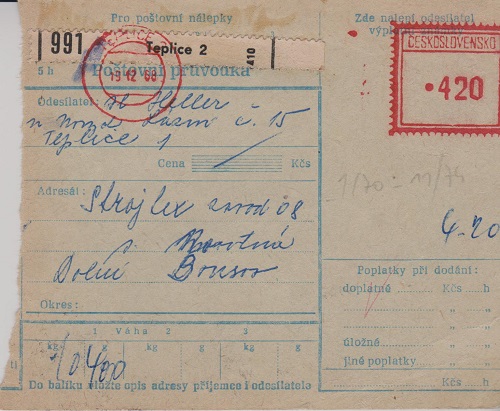 Pro poštovní nálepky
Zde nalepí odesílatel
výplatní známky
991
Teplice 2
410
TEPLICE
19.12.68
ČESKOSLOVENSKO
•420
5 h
Poštovní průvodka
Odesílatel: Heller č
č. 15
Teplice 1
Cena
Kčs
1/70 - 11/74
Adresát:
Strojtex závod 08
4.20
Dolní Bousov
Okres:
Poplatky při dodání:
doplatné Kčs h
„ „
„ „
úložné „ „
jiné poplatky „ „
1 Váha 2 3
kg g kg g kg g
10 400
Do balíku vložte opis adresy příjemce i odesílatele